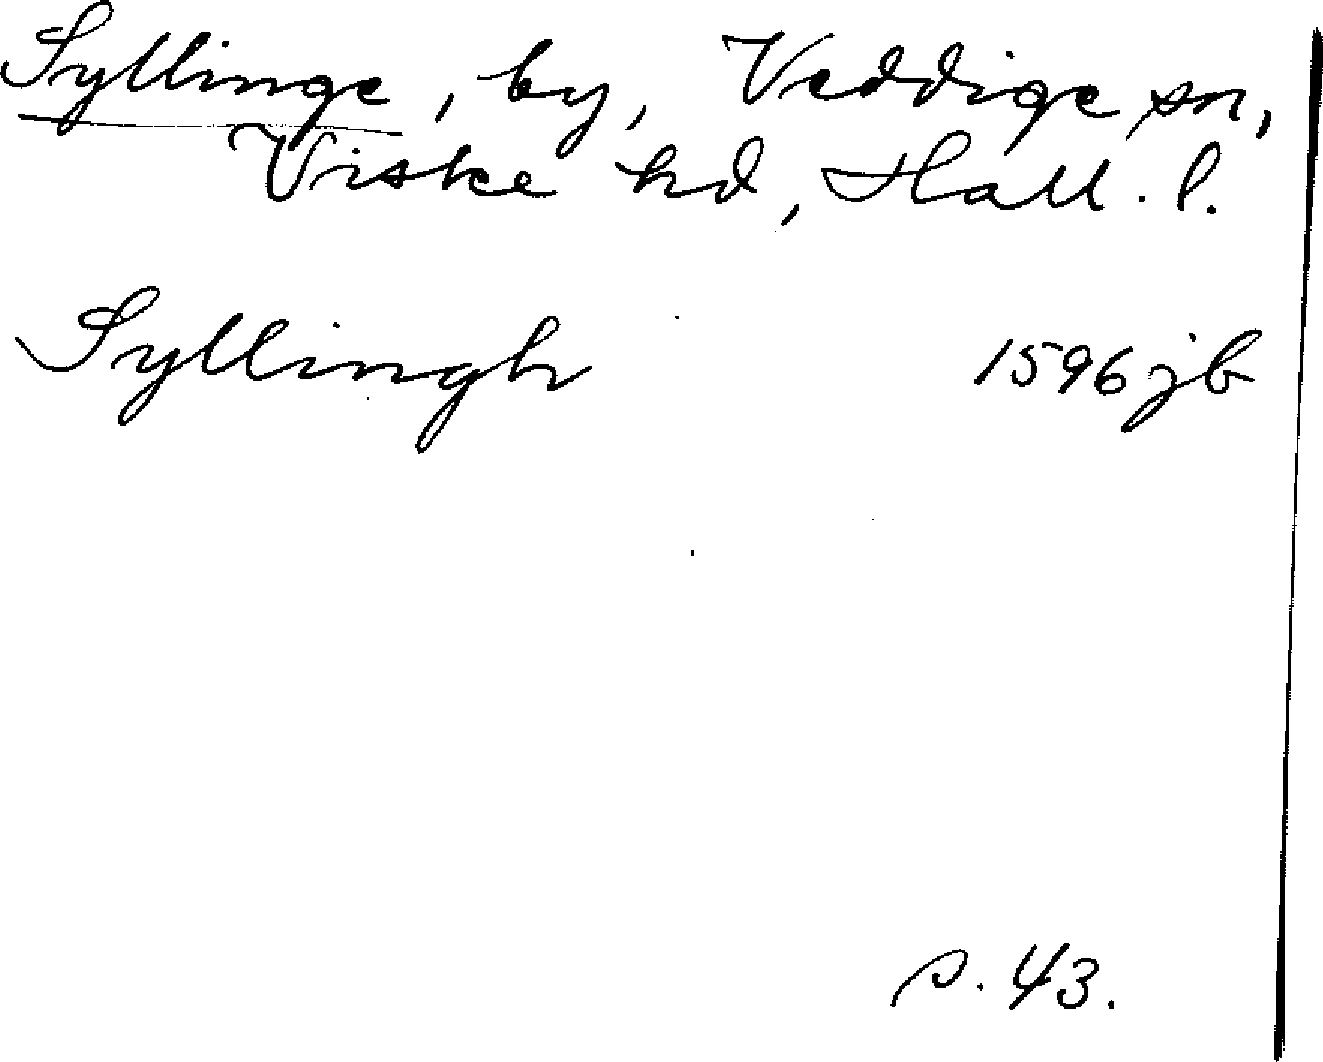 Syllinge, by, Veddige sn,
Viske hd, Hall. l.
Syllingh 1596 jb
s. 43.